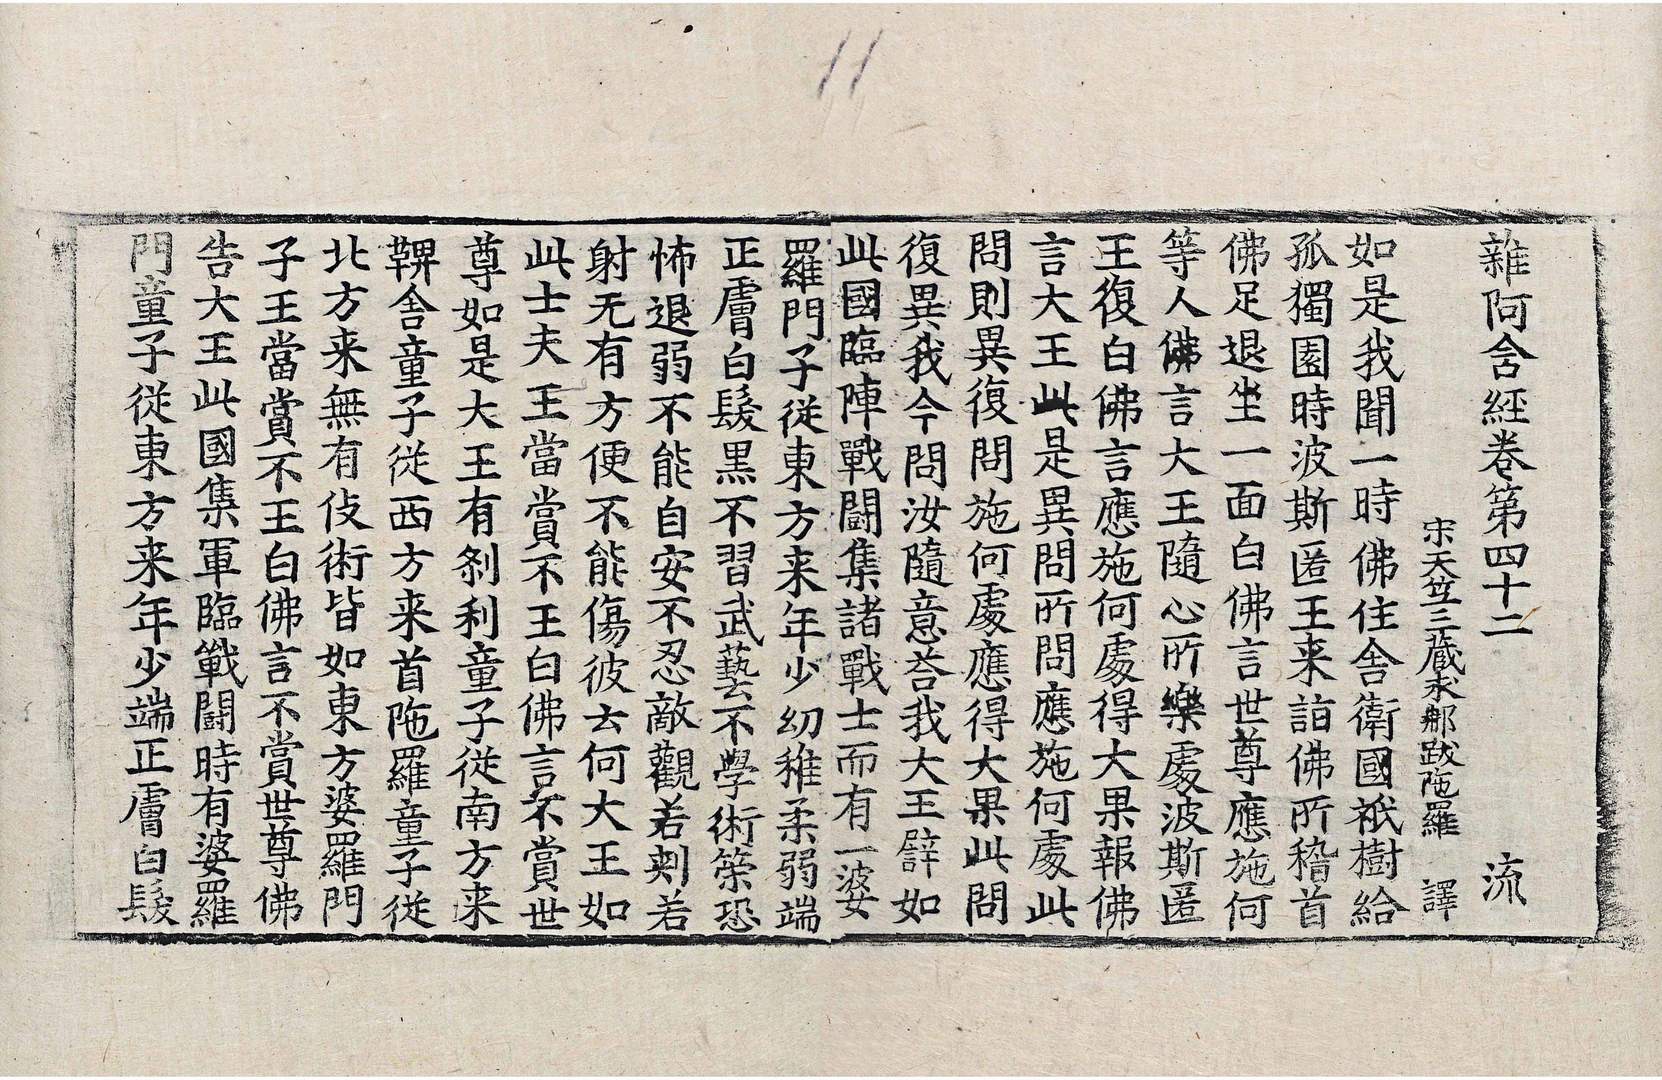 11
雜阿含經卷第四十二 流
宋天竺三藏求那跋陁羅 譯
如是我聞一時佛住舍衛國祇樹給
孤獨園時波斯匿王来詣佛所稽首
佛足退坐一面白佛言世尊應施何
等人佛言大王隨心所樂處波斯匿
王復白佛言應施何處得大果報佛
言大王此是異問所問應施何處此
問則異復問施何處應得大果此問
復異我今問汝隨意荅我大王譬如
此國臨陣戰鬪集諸戰士而有一婆
羅門子從東方来年少幼稚柔弱端
正膚白髮黒不習武藝不學術策恐
怖退弱不能自安不忍敵觀若刺若
射无有方便不能傷彼云何大王如
此士夫王當賞不王白佛言不賞世
尊如是大王有剎利童子從南方来
鞞舍童子從西方来首陁羅童子從
北方来無有伎術皆如東方婆羅門
子王當賞不王白佛言不賞世尊佛
告大王此國集軍臨戰鬪時有婆羅
門童子從東方来年少端正膚白髮